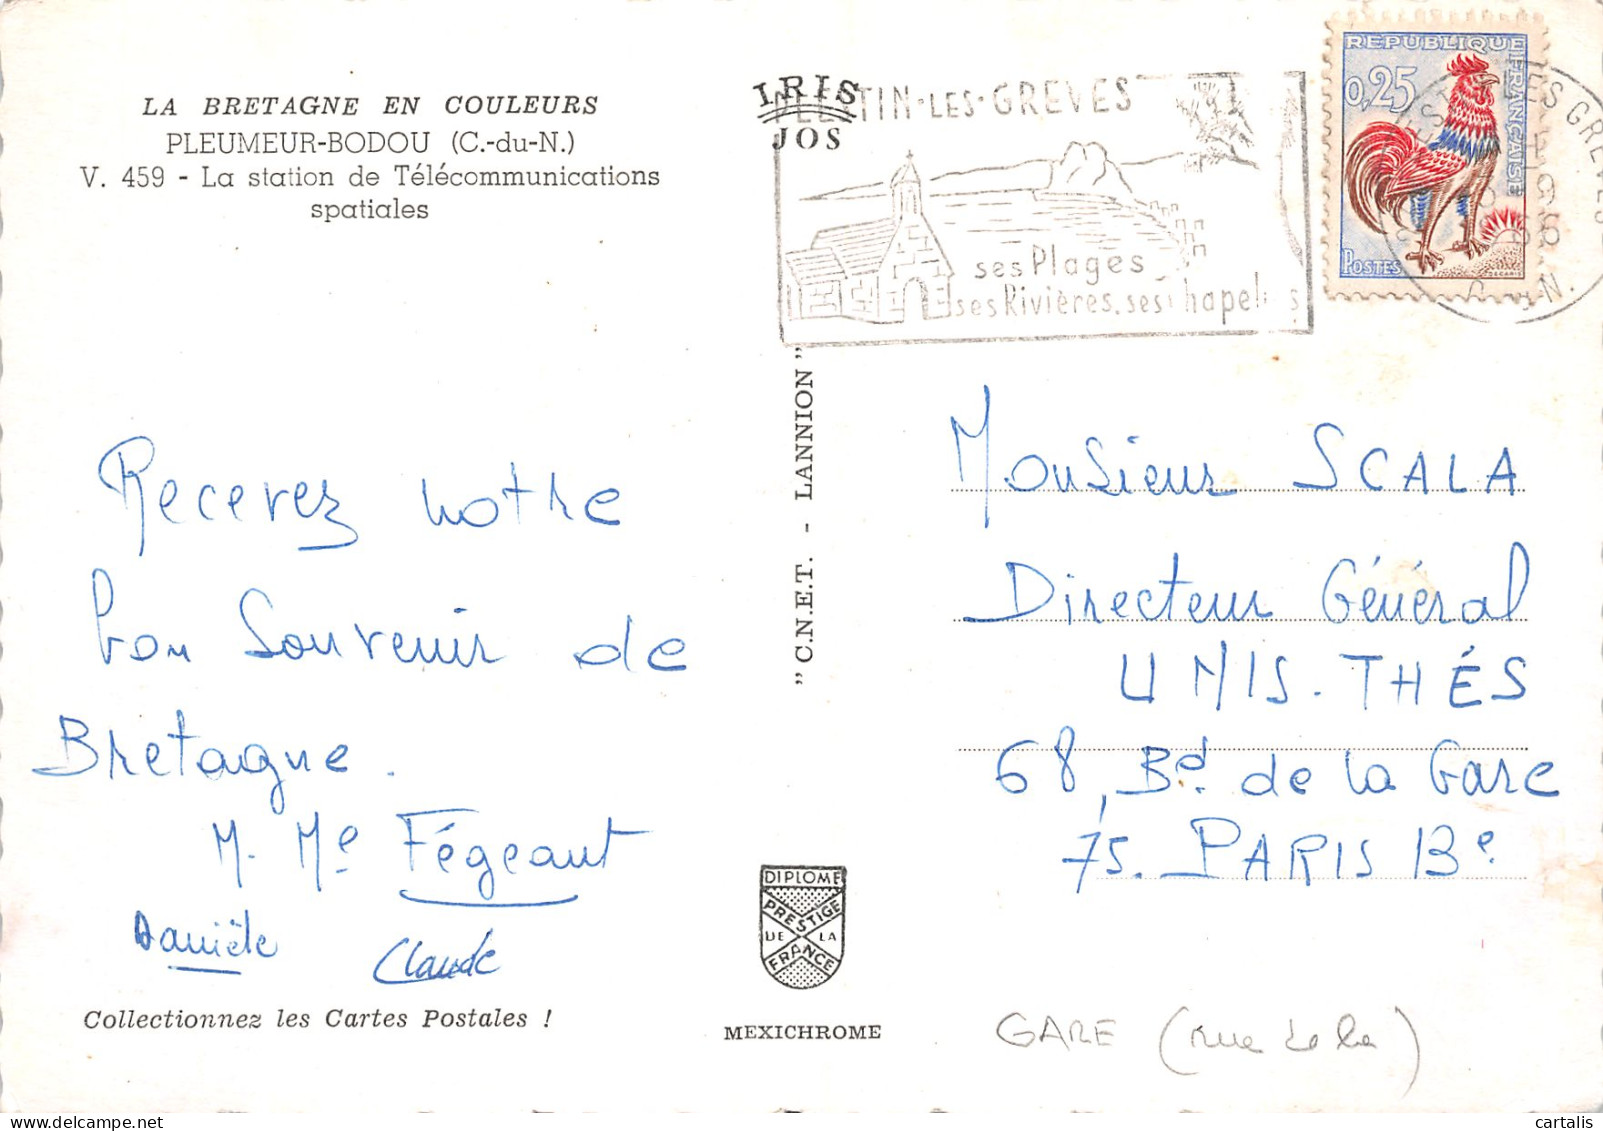 LA BRETAGNE EN COULEURS
PLEUMEUR-BODOU (C.-du-N.)
V. 459 - La station de Télécommunications
spatiales
IRIS
JOS
TIN-LES-GREVES
ses Plages
ses Rivières, ses hapel s
REPUBLIQUE
FRANÇAISE
0,25
POSTES
ES GREVES
Recevez notre
bon souvenir de
Bretagne.
M. Me Fégeant
Danièle
Claude
Collectionnez les Cartes Postales !
" C.N.E.T. - LANNION "
DIPLOME
PRESTIGE
DE LA
FRANCE
MEXICHROME
Monsieur SCALA
Directeur Général
UNIS-THÉS
68, Bd. de la Gare
75. PARIS 13e.
GARE (rue de la)
cartalis